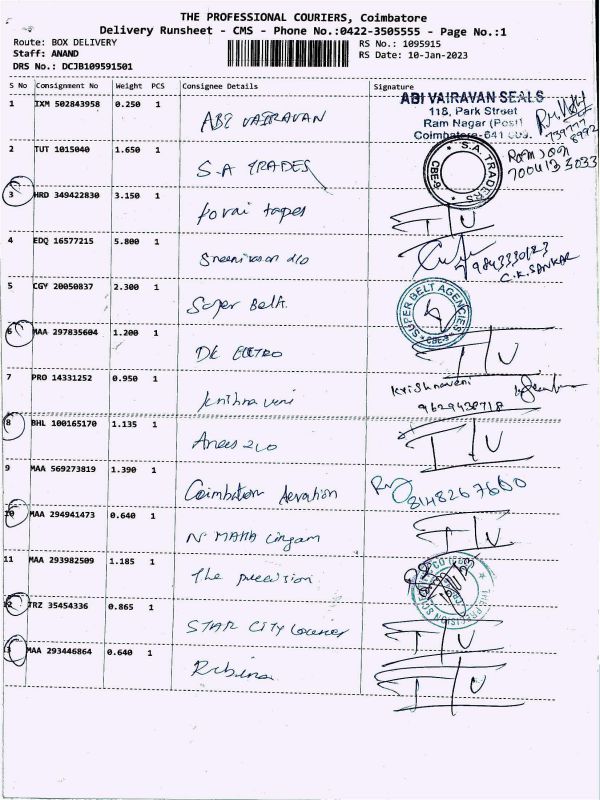 THE PROFESSIONAL COURIERS, Coimbatore
Delivery Runsheet - CMS - Phone No.:0422-3505555 - Page No.:1
Route: BOX DELIVERY
RS No.: 1095915
Staff: ANAND
RS Date: 10-Jan-2023
DRS No.: DCJB109591501
S No Consignment No Weight PCS Consignee Details Signature
1 IXM 502843958 0.250 1 ABI VAIRAVAN
ABI VAIRAVAN SEALS
118, Park Street
Ram Nagar (Post)
Coimbatore-641 009.
2 TUT 1015040 1.650 1 S.A TRADES
S.A. TRADERS
CBE-9
3 HRD 349422830 3.150 1 Kovai tapes
I/U
4 EDQ 16577215 5.800 1 Sreenivasan
C.K. SANKAR
5 CGY 20050837 2.300 1 Super Belt
SUPER BELT AGENCIES
6 MAA 297835604 1.200 1 DK ELECTRO
I/U
7 PRO 14331252 0.950 1 Krithra veni
Krishnaveni
9629438718
8 BHL 100165170 1.135 1
I/U
9 MAA 569273819 1.390 1 Coimbatore Aeration
8148267600
10 MAA 294941473 0.640 1 N. MAHA Lingam
I/U
11 MAA 293982509 1.185 1 The precision
12 TRZ 35454336 0.865 1 STAR CITY
I/U
13 MAA 293446864 0.640 1 Rubina
I/U